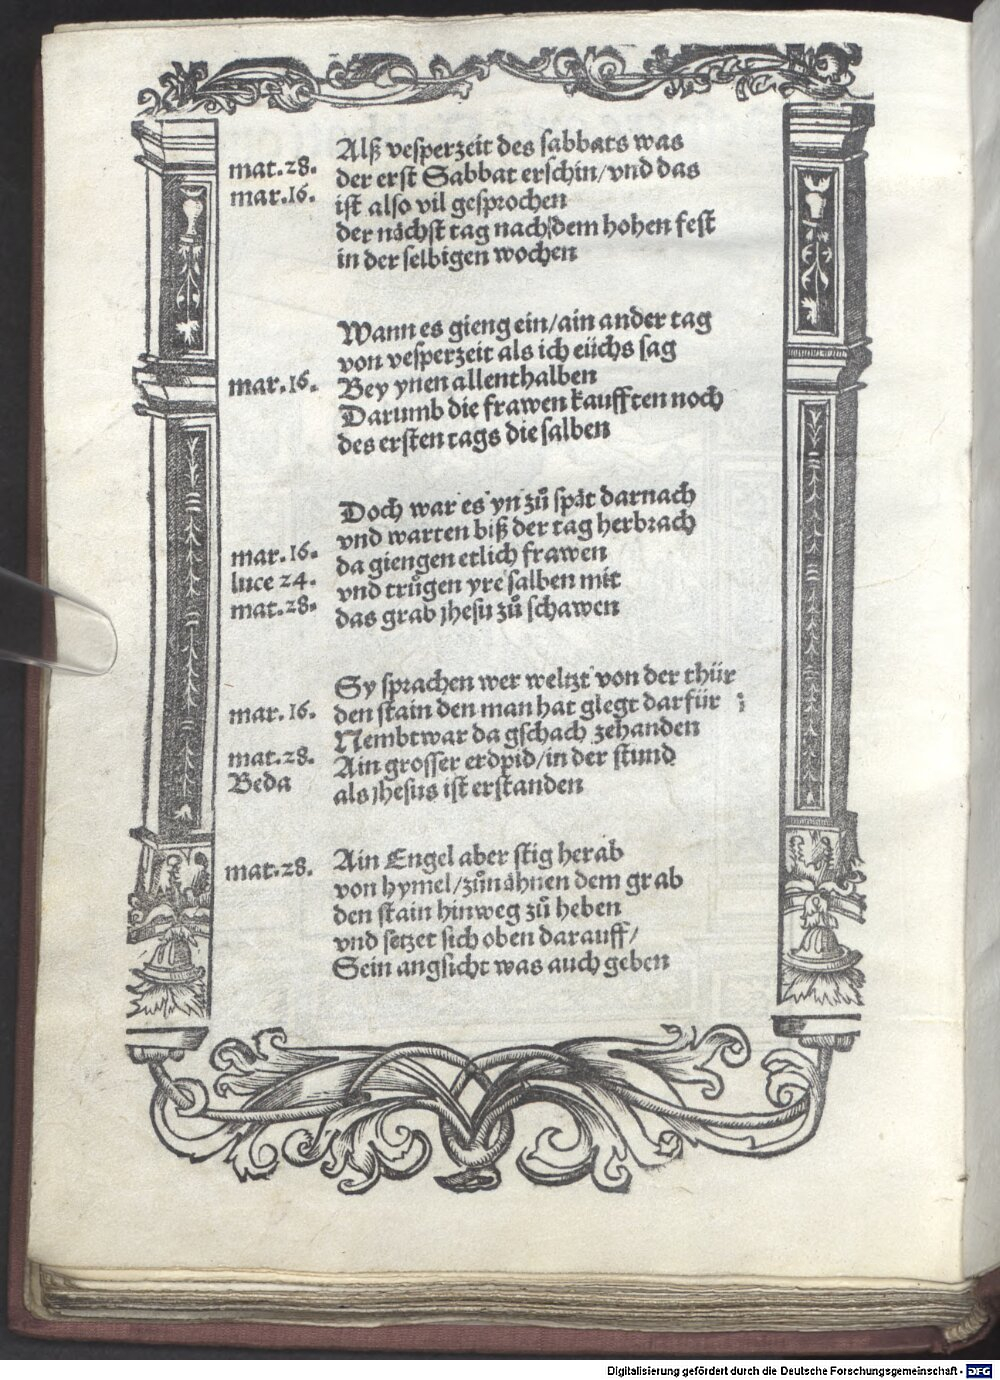 Alß vesperzeit des sabbats was
mat.28. der erst Sabbat erschin/vnd das
mar.16. ist also vil gesprochen
der nächst tag nach dem hohen fest
in der selbigen wochen
Wann es gieng ein/ain ander tag
von vesperzeit als ich eüchs sag
mar.16. Bey ynen allenthalben
Darumb die frawen kaufften noch
des ersten tags die salben
Doch war es yn zů spåt darnach
vnd warten biß der tag herbrach
mar.16. da giengen etlich frawen
luce 24. vnd trůgen yre salben mit
mat.28. das grab jhesu zů schawen
Sy sprachen wer weltzt von der thür
mar.16. den stain den man hat glegt darfür
Nembt war da gschach zehanden
mat.28. Ain grosser erdpid/in der stund
Beda als jhesus ist erstanden
mat.28. Ain Engel aber stig herab
von hymel/zůnåhnen dem grab
den stain hinweg zů heben
vnd setzet sich oben darauff/
Sein angsicht was auch geben
Digitalisierung gefördert durch die Deutsche Forschungsgemeinschaft - DFG